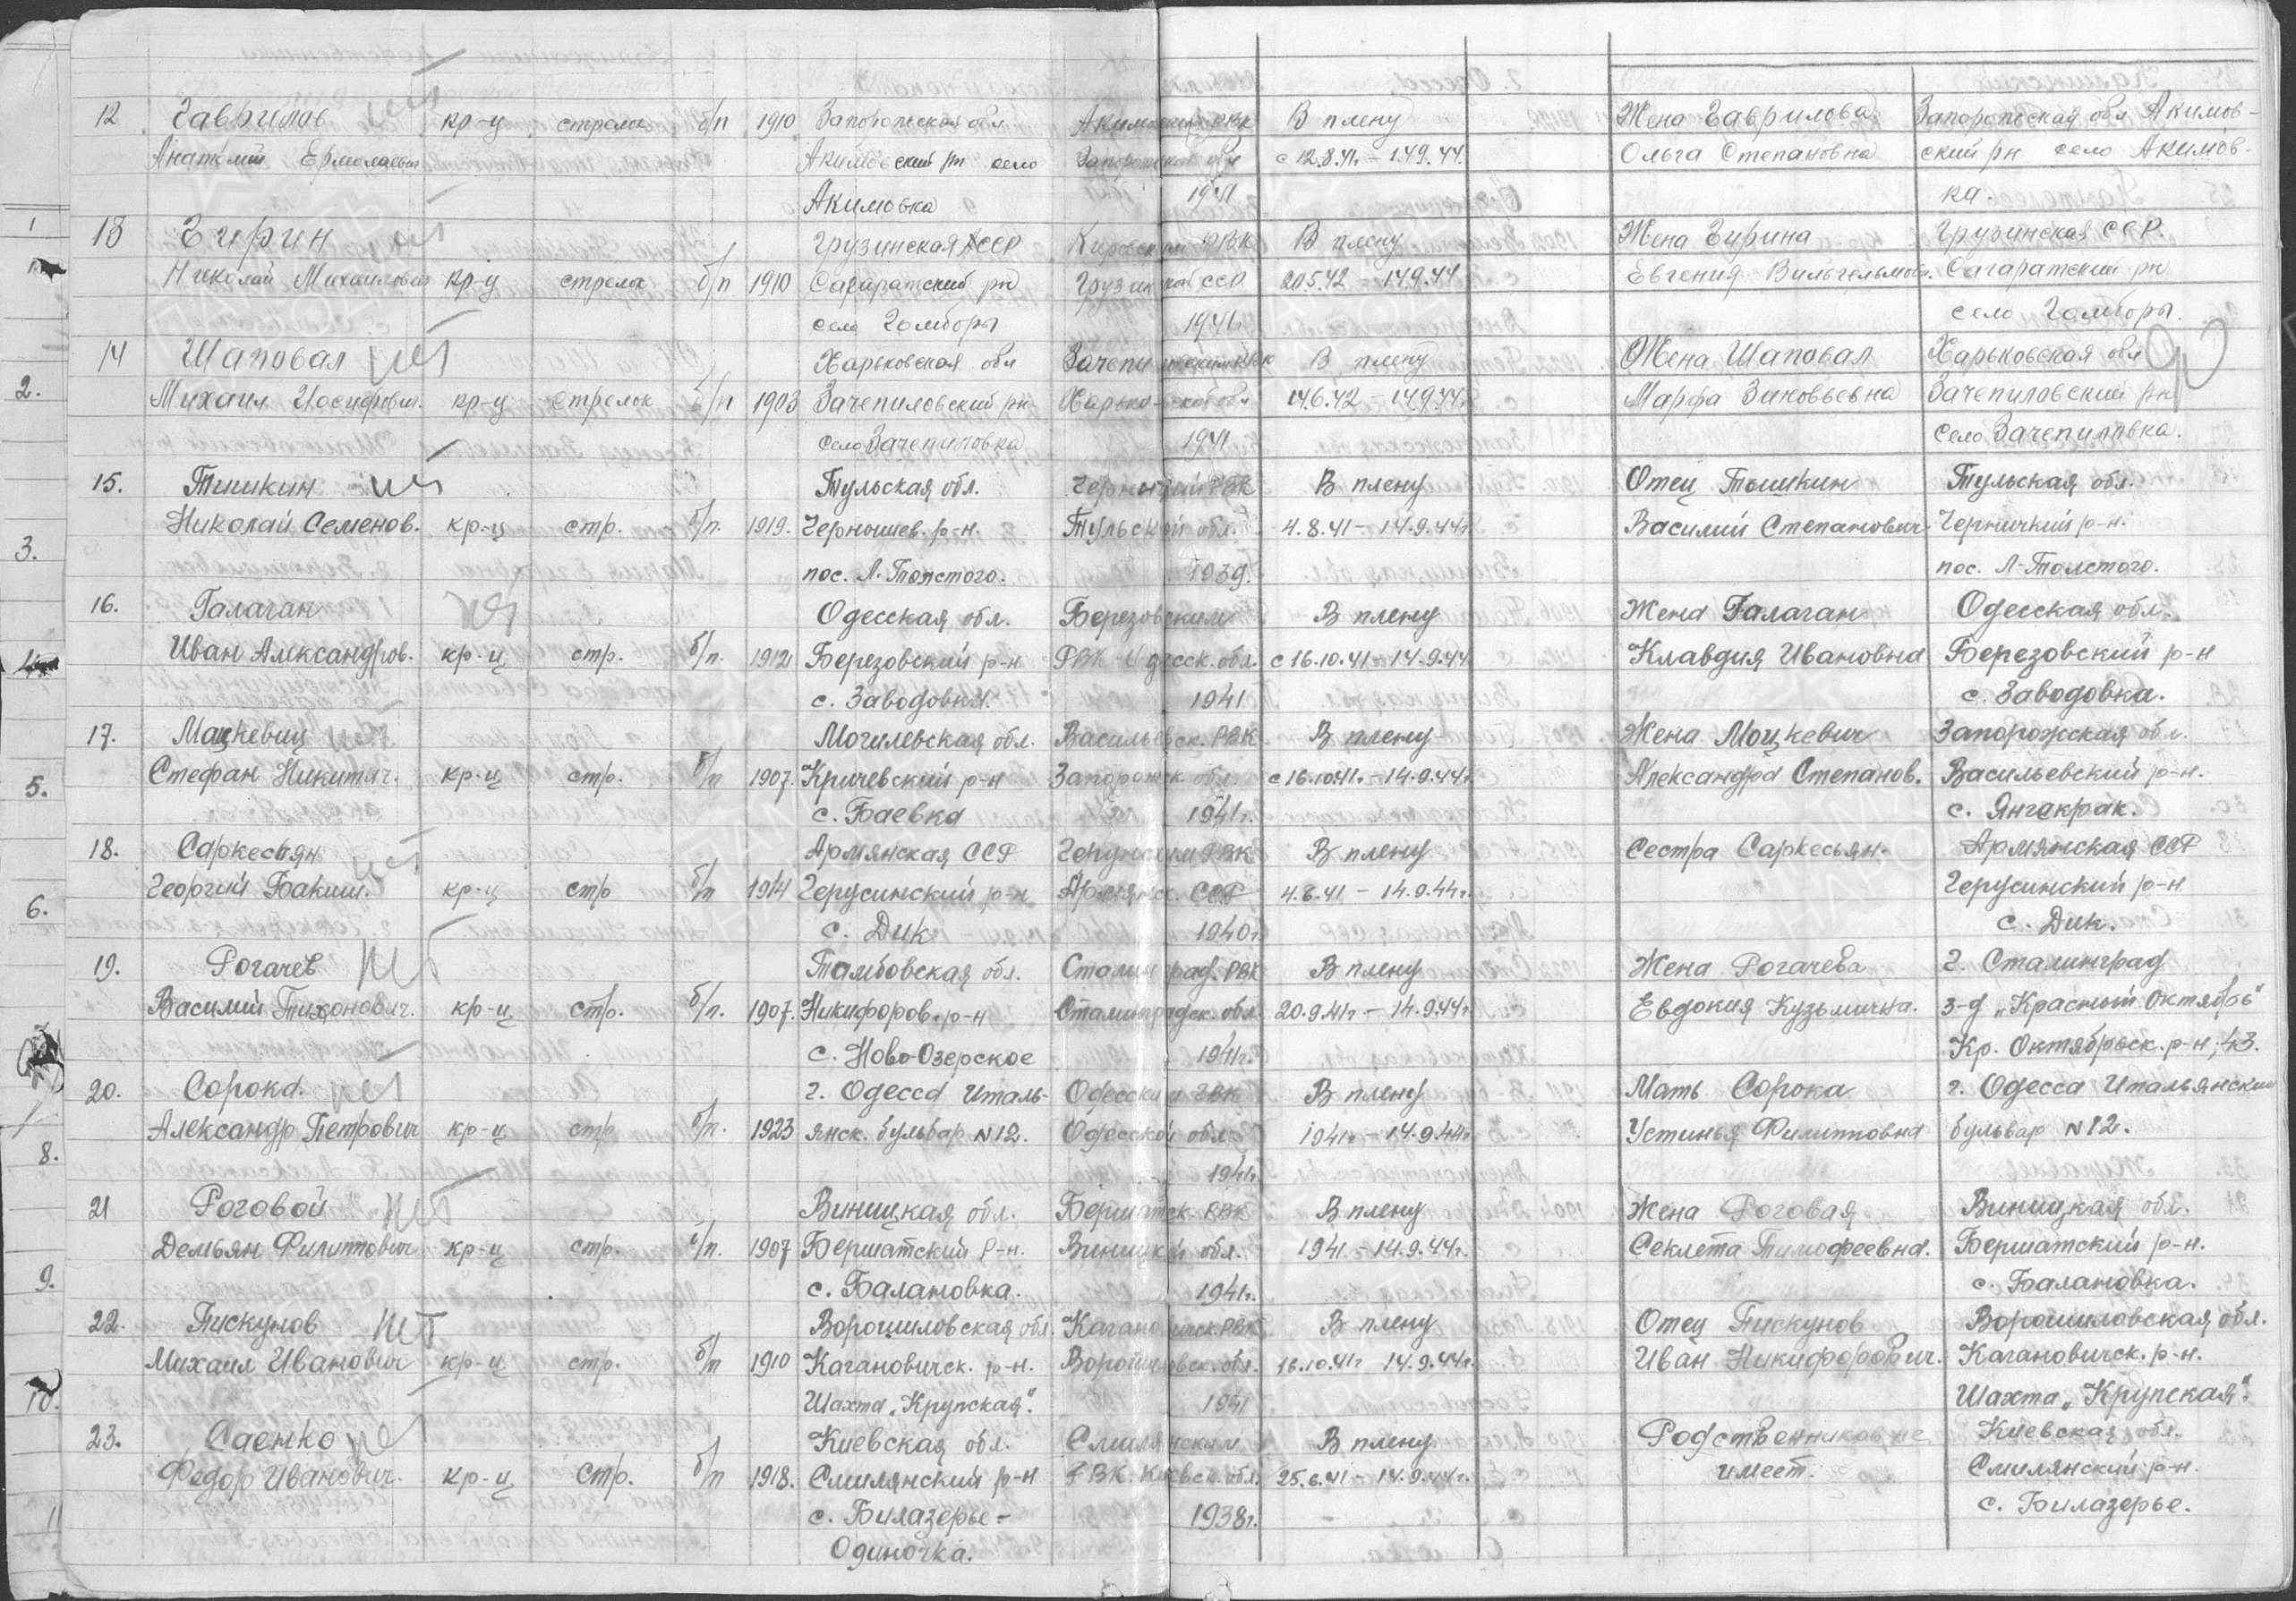 12 Гаврилов кр-ц стрелок б/п 1910 Запорожская обл. Акимовский РВК В плену Жена Гаврилова Запорожская обл Акимов-
Анатолий Ермолаевич Акимовский рн село Запорожской обл с 12.8.41г. – 14.9.44. Ольга Степановна ский рн село Акимов-
Акимовка 1941 ка.
13 Гирин Грузинская ССР Кировским РВК В плену Жена Гирина Грузинская ССР.
Николай Михайлович кр-ц стрелок б/п 1910 Сагаратский рн Грузинской ССР 20.5.42 – 14.9.44 Евгения Вильгельмовн. Сагаратский рн
село Гомборы 1941г. село Гомборы.
14 Шаповал Харьковская обл Зачепиловским РВК В плену Жена Шаповал Харьковская обл
Михаил Иосифович. кр-ц стрелок б/п 1903 Зачепиловский рн Харьковской обл 14.6.42 – 14.9.44г. Марфа Зиновьевна Зачепиловский рн
село Зачепиловка 1941 село Зачепиловка.
15. Тишкин Тульская обл. РВК В плену Отец Тышкин Тульская обл.
Николай Семенов. кр-ц стр. б/п. 1919. Чернышев. р-н. Тульской обл. 4.8.41 – 14.9.44г Василий Степанович Черничкий р-н.
пос. Л. Толстого. 1939. пос. Л-Толстого.
16. Галаган Одесская обл. Березовским В плену Жена Галаган Одесская обл.
Иван Александров. кр-ц стр. б/п. 1912 Березовский р-н РВК Одесск. обл. с 16.10.41 – 14.9.44 Клавдия Ивановна Березовский р-н
с. Заводовка. 1941 с. Заводовка.
17. Мацкевич Могилевская обл. Васильевск. РВК В плену Жена Моцкевич Запорожская обл.
Стефан Никитич. кр-ц стр. б/п 1907. Кричевский р-н Запорожск. обл. с 16.10.41г. – 14.9.44г. Александра Степанов. Васильевский р-н.
с. Баевка 1941г. с. Янгекрак.
18. Саркесьян Армянская ССР РВК В плену Сестра Саркесьян. Армянская ССР
Георгий Бакиш. кр-ц стр б/п 1914 Герусинский р-н Армянск. ССР 4.8.41 – 14.9.44г. Герусинский р-н
с. Дик 1940г. с. Дик.
19. Рогачев Тамбовская обл. Сталинград. РВК В плену Жена Рогачева г. Сталинград
Василий Тихонович. кр-ц стр. б/п. 1907. Никифоров. р-н Сталинградск. обл. 20.9.41г – 14.9.44г. Евдокия Кузьминна. з-д „Красный Октябрь"
с. Ново-Озерское 1941г. Кр. Октябрьск. р-н, 43.
20. Сорока. г. Одесса Италь- Одесским ГВК В плену Мать Сорока г. Одесса Итальянский
Александр Петрович кр-ц стр б/п. 1923 янск. бульвар N12. Одесской обл. 1941г – 14.9.44г. Устинья Филипповна бульвар N12.
1941г.
21 Роговой Виницкая обл. Бершатск. РВК В плену Жена Роговая Виницкая обл.
Демьян Филиппович кр-ц стр. б/п. 1907 Бершатский р-н. Виницкой обл. 1941. – 14.9.44г. Секлета Тимофеевна. Бершатский р-н.
с. Балановка. 1941г. с. Балановка.
22. Пискунов Ворошиловская обл. Кагановичск. РВК В плену Отец Пискунов Ворошиловская обл.
Михаил Иванович кр-ц стр. б/п 1910 Кагановичск. р-н. Ворошиловск. обл. 16.10.41г 14.9.44г. Иван Никифорович. Кагановичск. р-н.
Шахта „Крупская". 1941 Шахта „Крупская".
23. Саенко Киевская обл. Смилянским В плену Родственников не Киевская обл.
Федор Иванович. кр-ц стр. б/п 1918. Смилянский р-н РВК. Киевск. обл. 25.6.41 – 14.9.44г. имеет. Смилянский р-н.
с. Билазерье – 1938г. с. Билазерье.
Одиночка.
1
2.
3.
4
5.
6.
8.
9.
10.
11